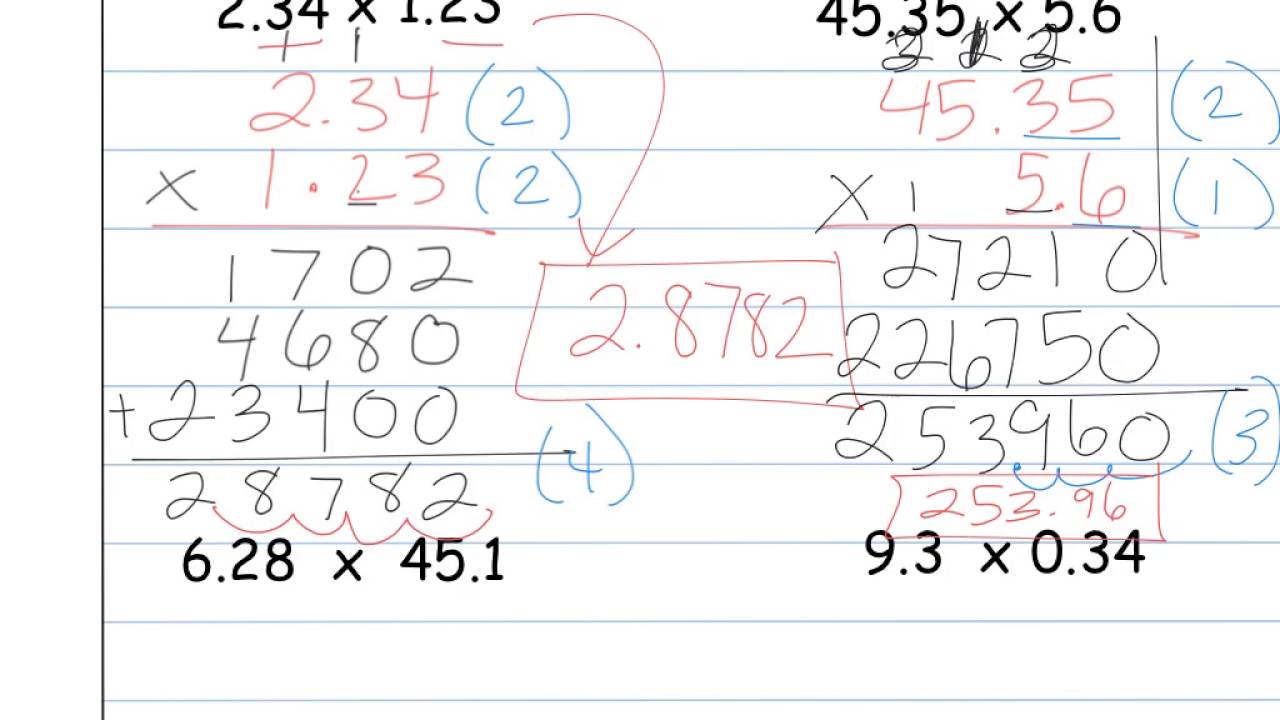 2.34 x 1.23
1 1
2.34 (2)
x 1.23 (2)
1702
4680
+23400
28782 (4)
2.8782
45.35 x 5.6
45.35 (2)
x 5.6 (1)
27210
226750
253960 (3)
253.96
6.28 x 45.1
9.3 x 0.34